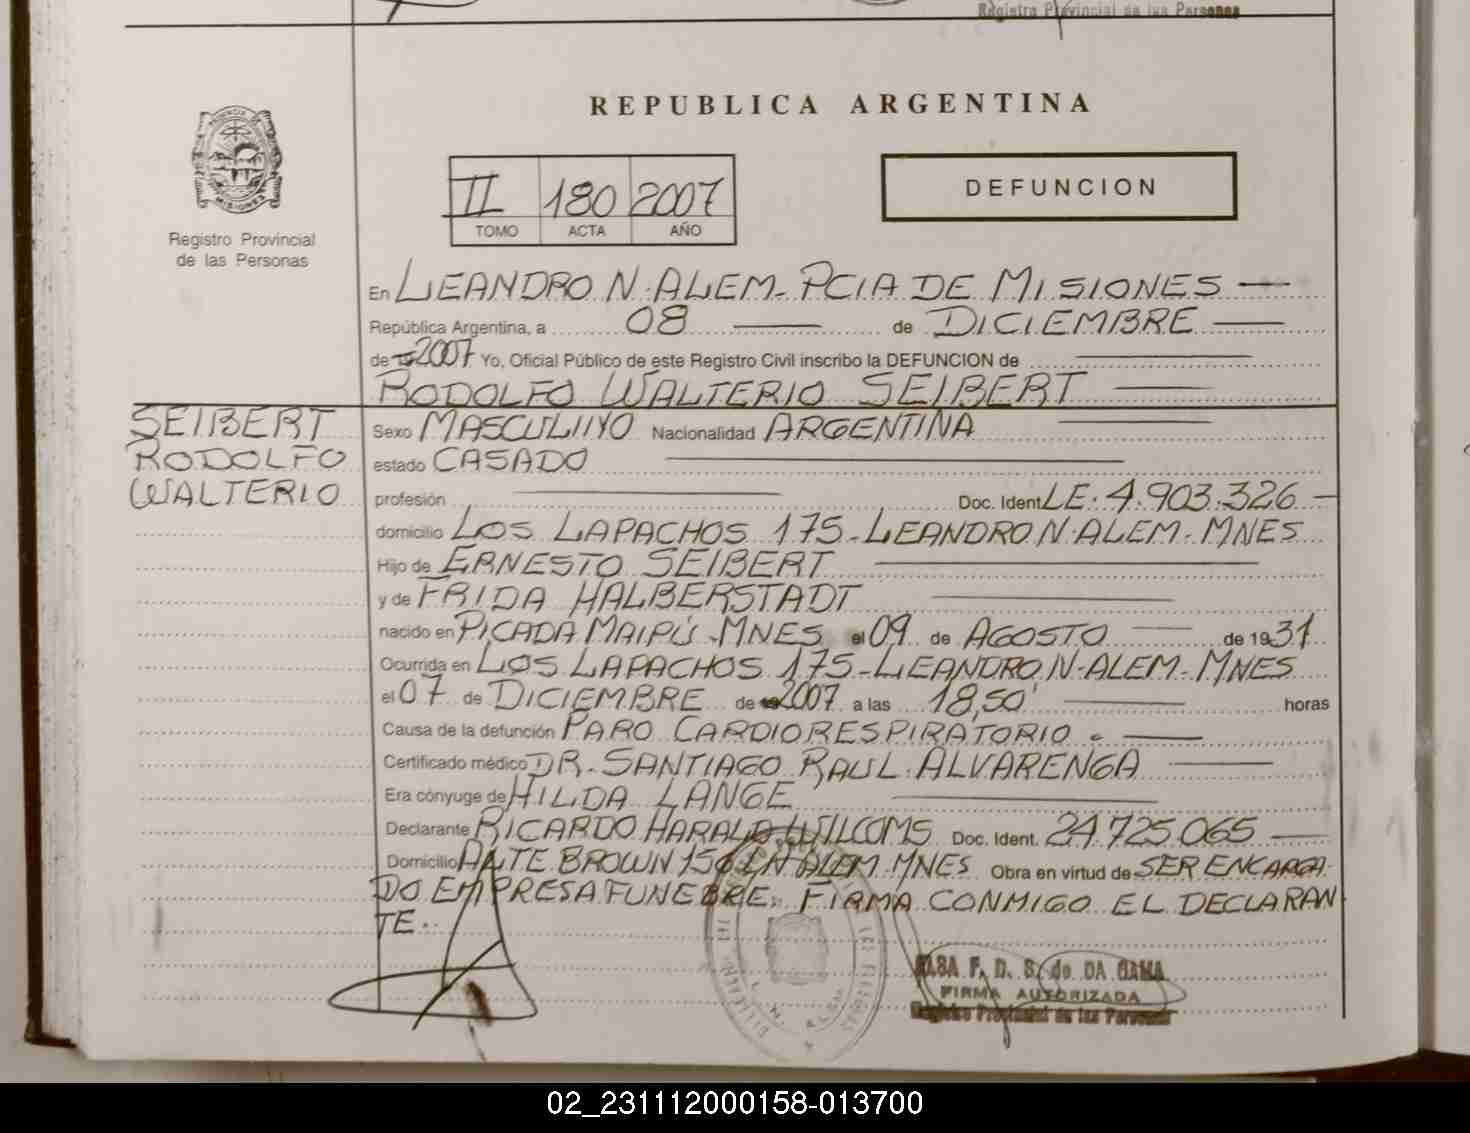 Registro Provincial de las Personas
REPUBLICA ARGENTINA
II 180 2007
TOMO ACTA AÑO
DEFUNCION
PROVINCIA DE
MISIONES
Registro Provincial
de las Personas
En LEANDRO N. ALEM - PCIA DE MISIONES
República Argentina, a 08 de DICIEMBRE
de 2007 Yo, Oficial Público de este Registro Civil inscribo la DEFUNCION de
RODOLFO WALTERIO SEIBERT
SEIBERT
RODOLFO
WALTERIO
Sexo MASCULINO Nacionalidad ARGENTINA
estado CASADO
profesión Doc. Ident LE. 4.903.326
domicilio LOS LAPACHOS 175 - LEANDRO N. ALEM - MNES
Hijo de ERNESTO SEIBERT
y de FRIDA HALBERSTADT
nacido en PICADA MAIPÚ - MNES el 09 de AGOSTO de 1931
Ocurrida en LOS LAPACHOS 175 - LEANDRO N. ALEM - MNES
el 07 de DICIEMBRE de 2007 a las 18,50' horas
Causa de la defunción PARO CARDIORESPIRATORIO.
Certificado médico DR. SANTIAGO RAUL ALVARENGA
Era cónyuge de HILDA LANGE
Declarante RICARDO HARALD WILCOMS Doc. Ident. 24.725.065
Domicilio ALTE BROWN LN ALEM MNES Obra en virtud de SER ENCARGA
DO EMPRESA FUNEBRE. FIRMA CONMIGO EL DECLARAN
TE.
F. D. S. de DA GAMA
FIRMA AUTORIZADA
Registro Provincial de las Personas
02_231112000158-013700